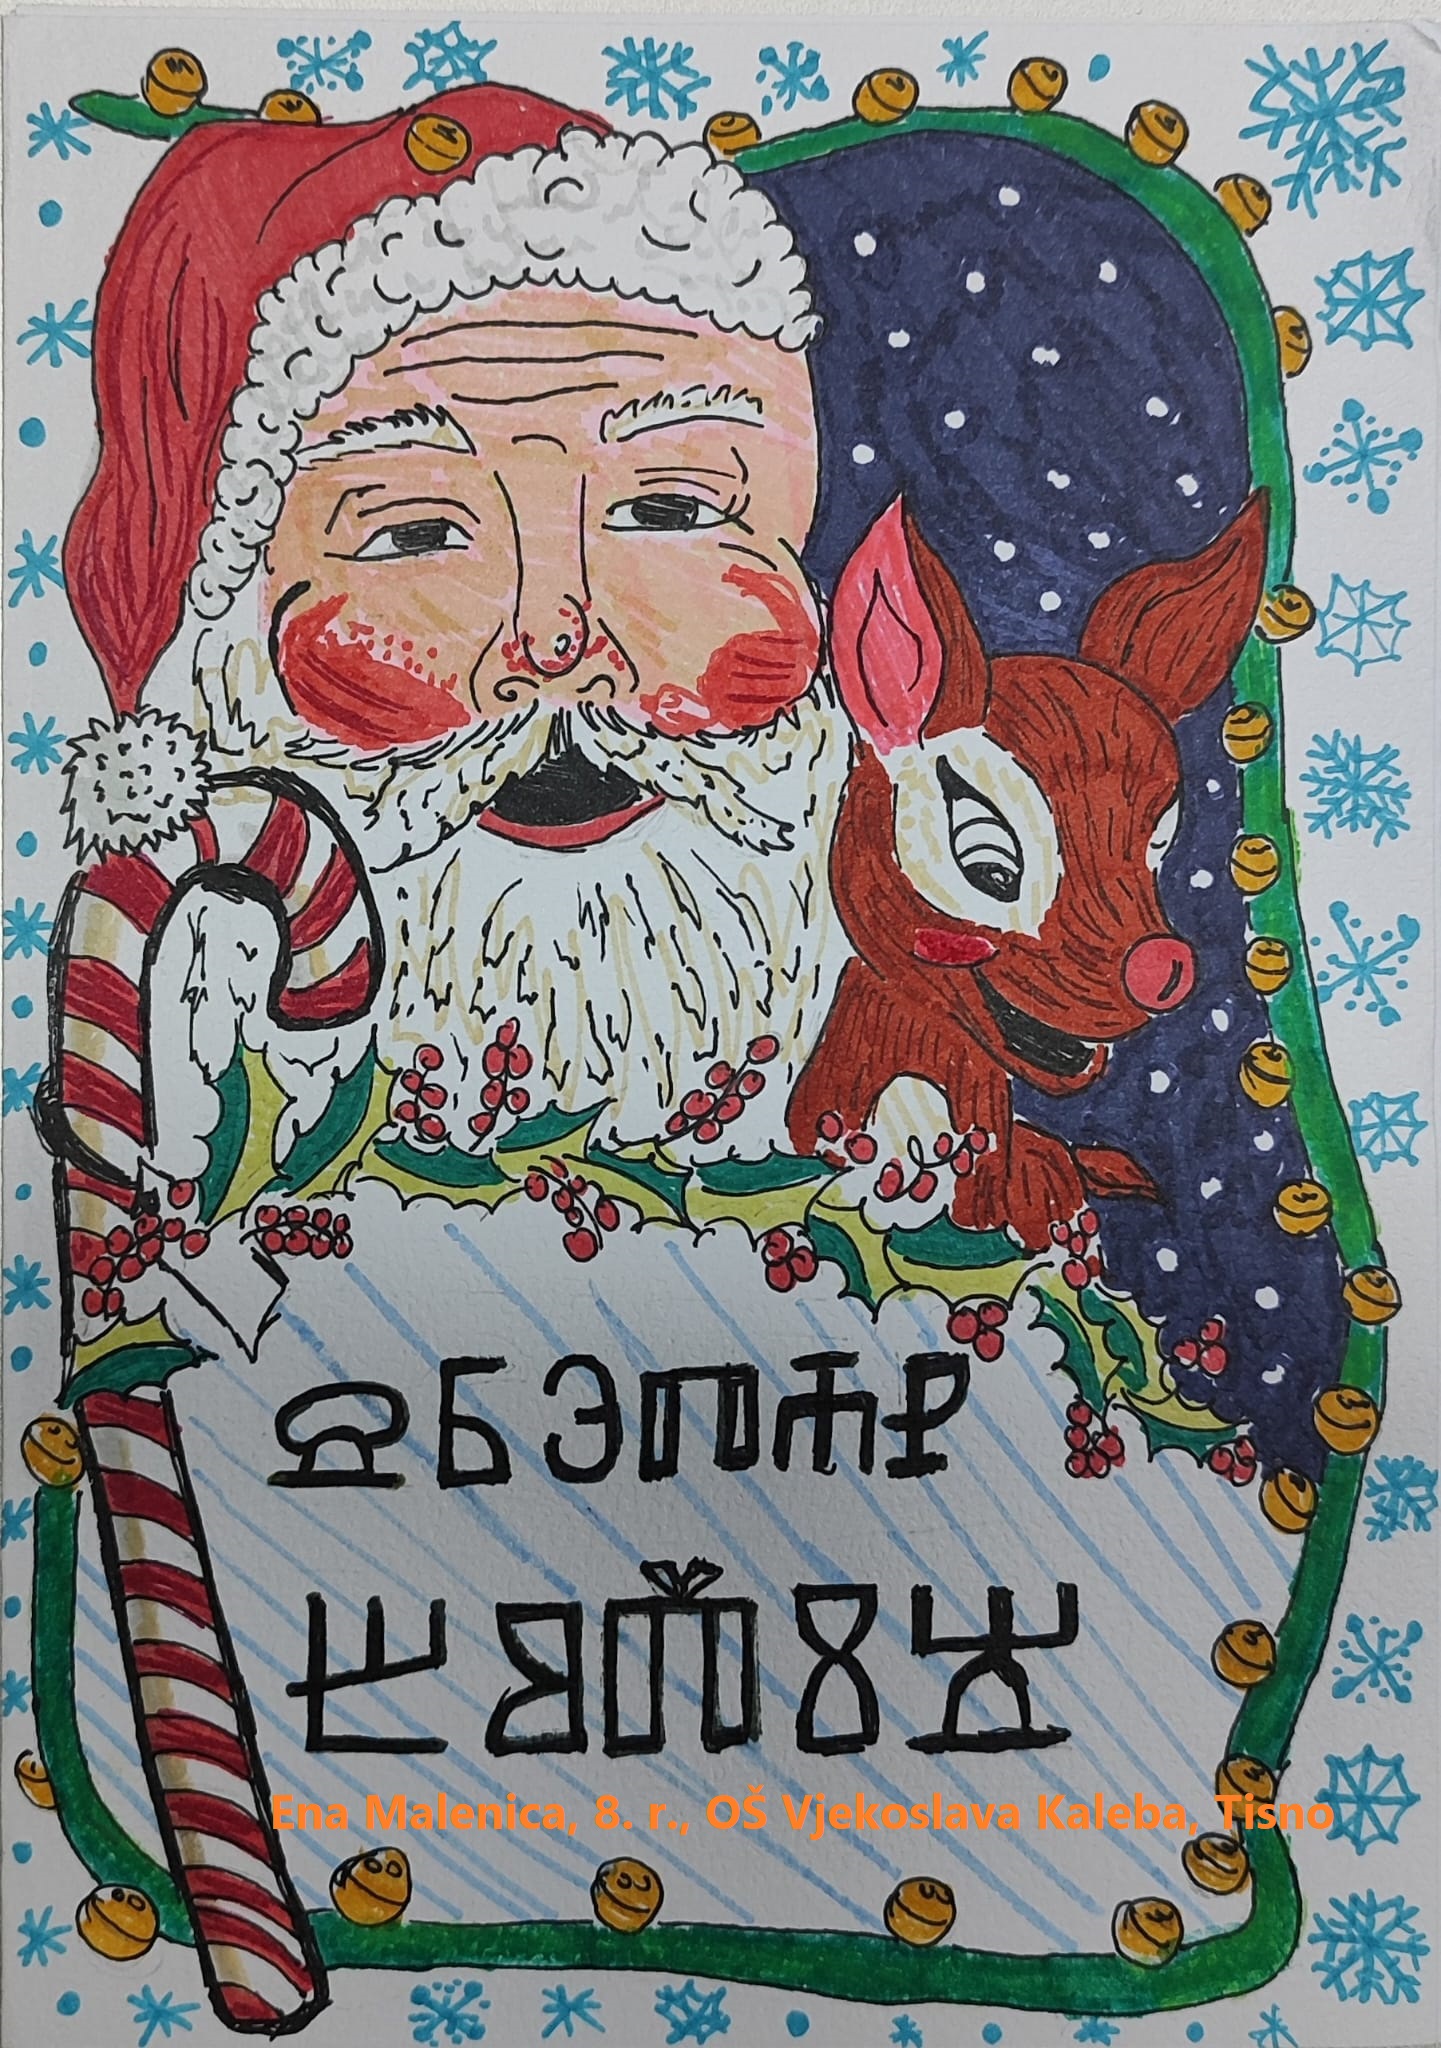 ⰔⰓⰅⰕⰀⰐ
ⰁⰑⰆⰋⰛ
Ena Malenica, 8. r., OŠ Vjekoslava Kaleba, Tisno